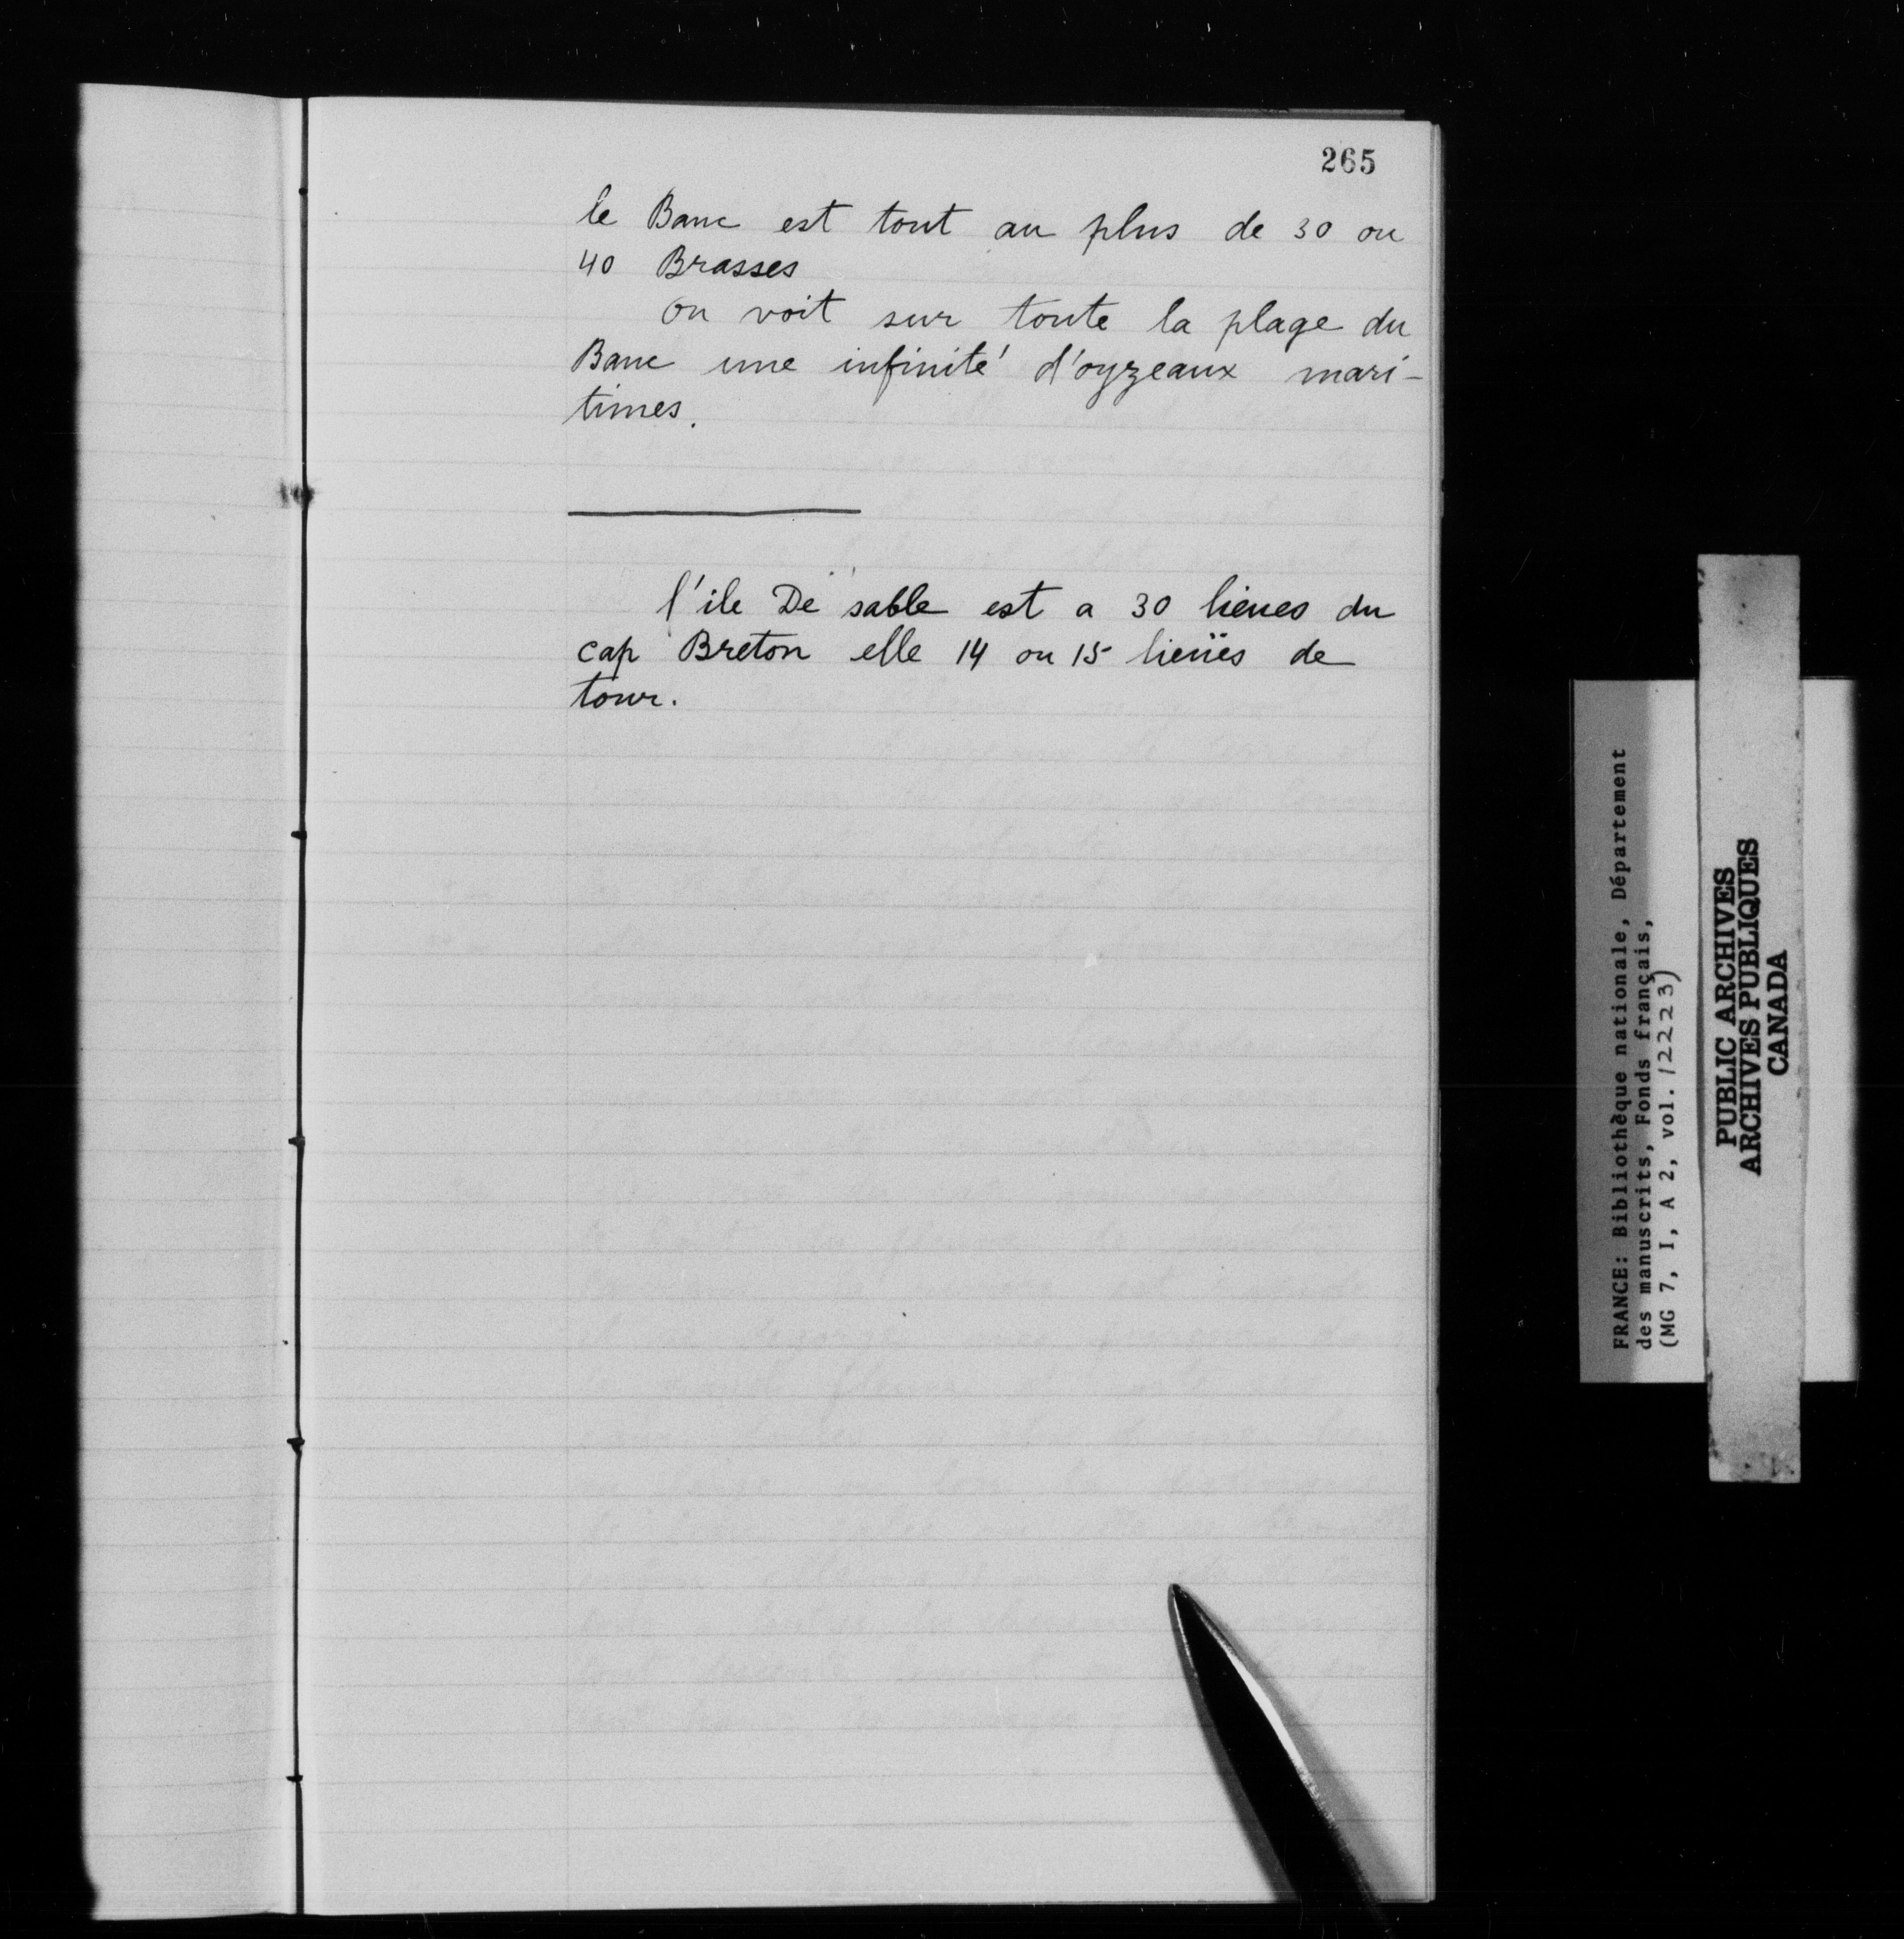 265
le Banc est tout au plus de 30 ou
40 Brasses
on voit sur toute la plage du
Banc une infinité d'oyzeaux mari-
times.
l'ile De sable est a 30 lieues du
cap Breton elle 14 ou 15 lieües de
tour.
FRANCE: Bibliothèque nationale, Département
des manuscrits, Fonds français,
(MG 7, I, A 2, vol. 12223)
PUBLIC ARCHIVES
ARCHIVES PUBLIQUES
CANADA